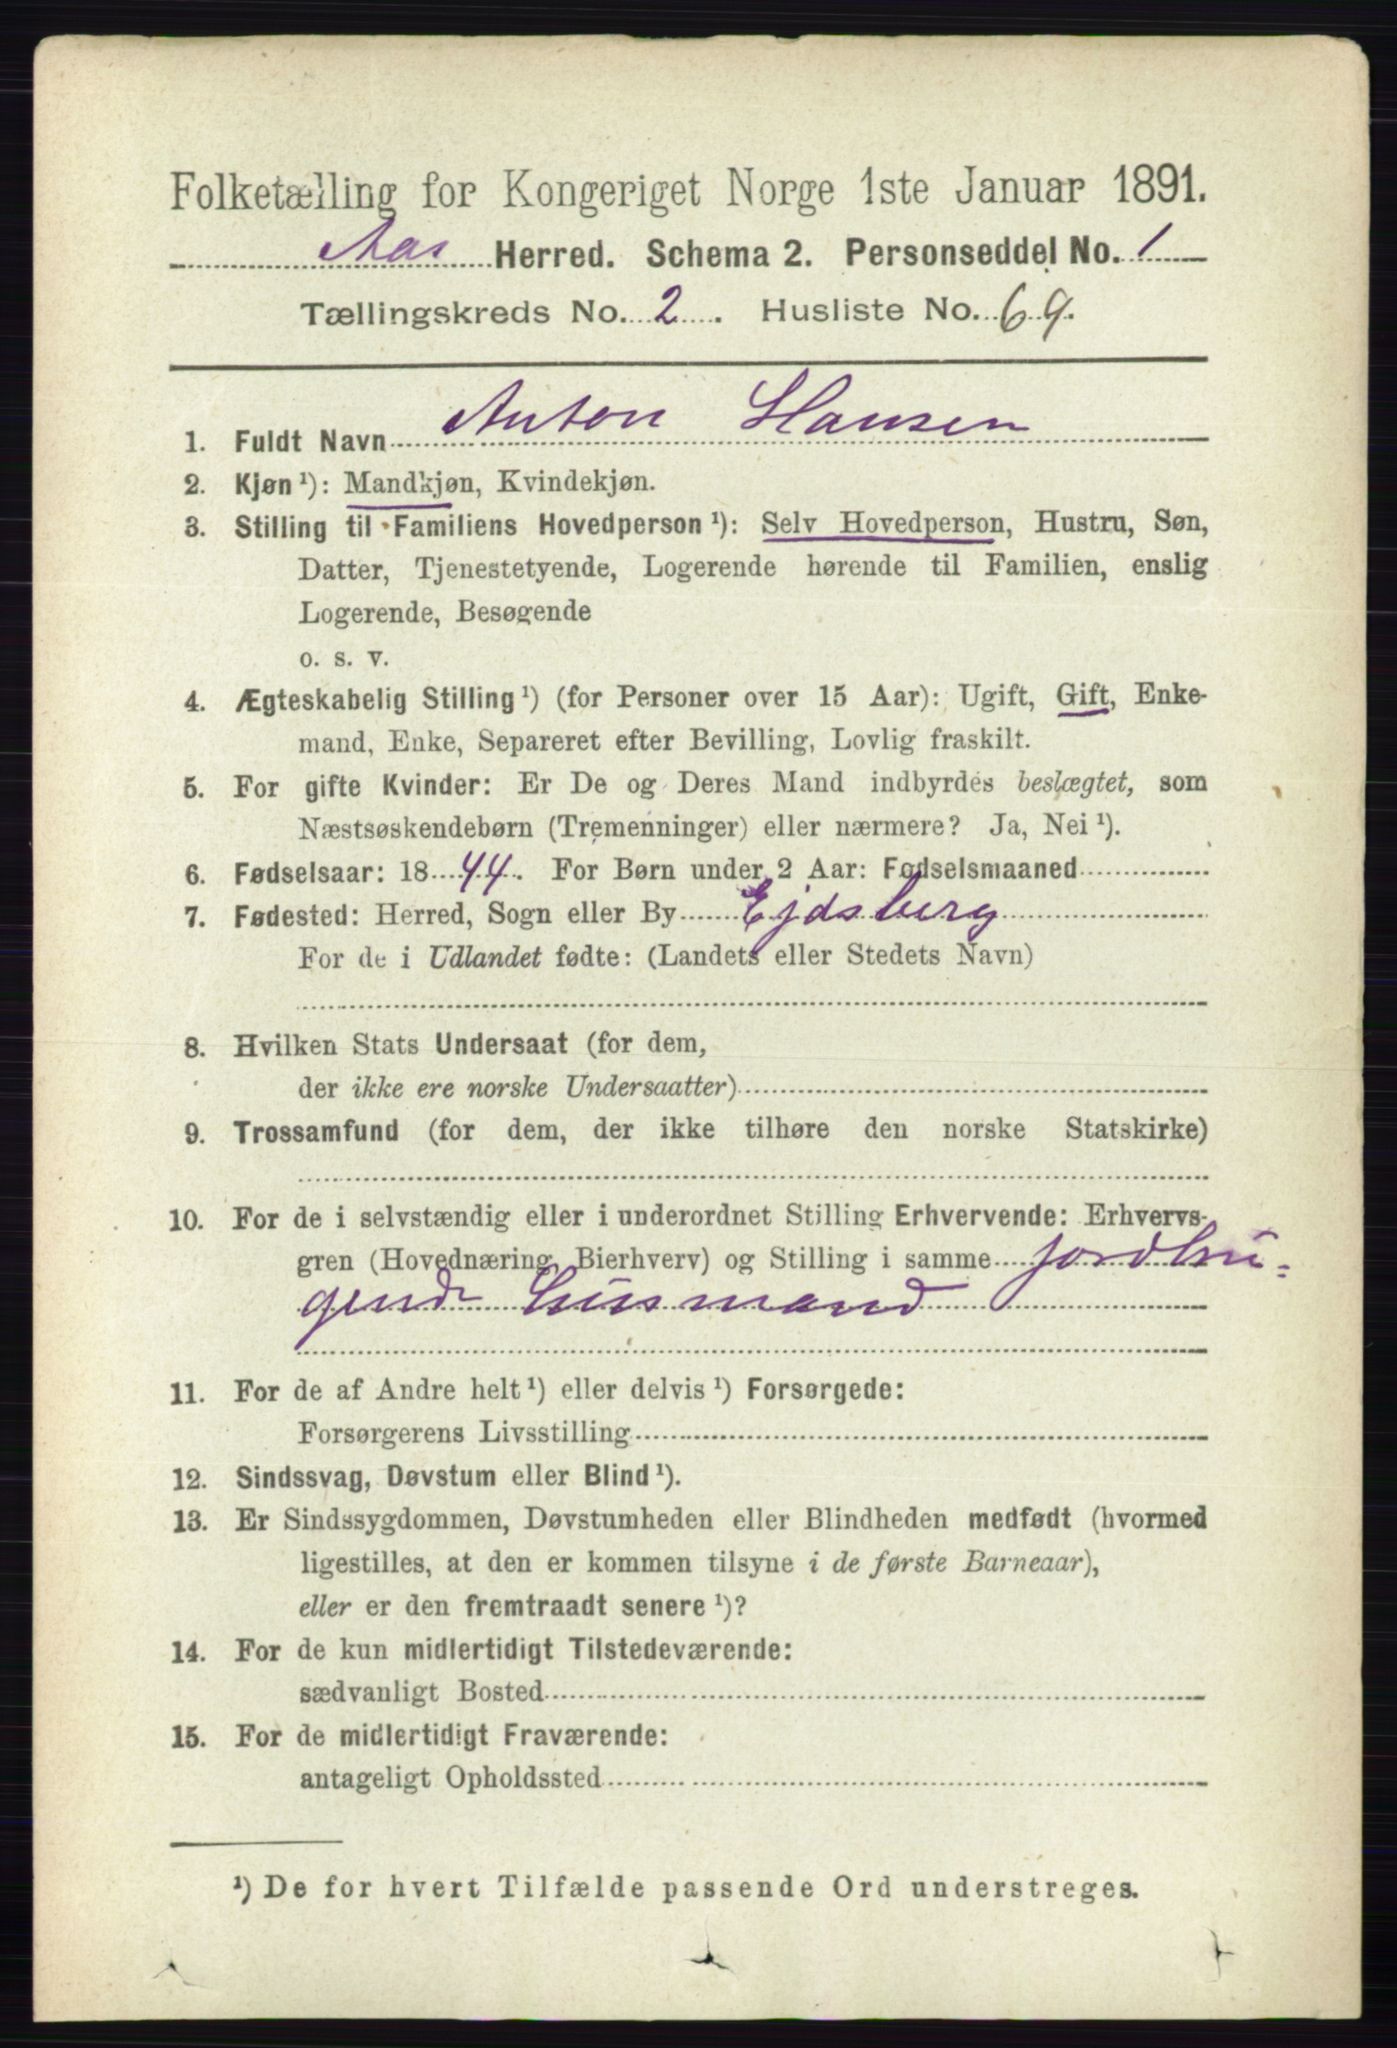 Folketælling for Kongeriget Norge 1ste Januar 1891.
Aas Herred. Schema 2. Personseddel No. 1
Tællingskreds No. 2. Husliste No. 69.
1. Fuldt Navn Anton Hansen
2. Kjøn ¹): Mandkjøn, Kvindekjøn.
3. Stilling til Familiens Hovedperson ¹): Selv Hovedperson, Hustru, Søn,
Datter, Tjenestetyende, Logerende hørende til Familien, enslig
Logerende, Besøgende
o. s. v.
4. Ægteskabelig Stilling ¹) (for Personer over 15 Aar): Ugift, Gift, Enke-
mand, Enke, Separeret efter Bevilling, Lovlig fraskilt.
5. For gifte Kvinder: Er De og Deres Mand indbyrdes beslægtet, som
Næstsøskendebørn (Tremenninger) eller nærmere? Ja, Nei ¹).
6. Fødselsaar: 1844. For Børn under 2 Aar: Fødselsmaaned
7. Fødested: Herred, Sogn eller By Ejdsberg
For de i Udlandet fødte: (Landets eller Stedets Navn)
8. Hvilken Stats Undersaat (for dem,
der ikke ere norske Undersaatter)
9. Trossamfund (for dem, der ikke tilhøre den norske Statskirke)
10. For de i selvstændig eller i underordnet Stilling Erhvervende: Erhvervs-
gren (Hovednæring, Bierhverv) og Stilling i samme jordbru-
gende Husmand
11. For de af Andre helt ¹) eller delvis ¹) Forsørgede:
Forsørgerens Livsstilling
12. Sindssvag, Døvstum eller Blind ¹).
13. Er Sindssygdommen, Døvstumheden eller Blindheden medfødt (hvormed
ligestilles, at den er kommen tilsyne i de første Barneaar),
eller er den fremtraadt senere ¹)?
14. For de kun midlertidigt Tilstedeværende:
sædvanligt Bosted
15. For de midlertidigt Fraværende:
antageligt Opholdssted
¹) De for hvert Tilfælde passende Ord understreges.